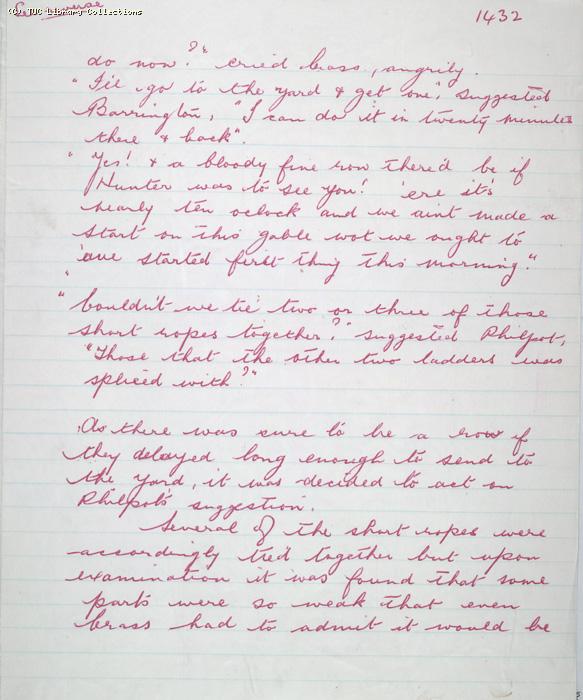 See reverse
(C) TUC Library Collections
1432
do now?" cried Crass, angrily.
"I'll go to the yard & get one", suggested
Barrington, "I can do it in twenty minutes
there & back".
"Yes! & a bloody fine row there'd be if
Hunter was to see you! 'ere it's
nearly ten oclock and we aint made a
start on this gable wot we ought to
'ave started first thing this morning."
"
"Couldn't we tie two or three of those
short ropes together?" suggested Philpot,
"Those that the other two ladders was
spliced with?"
As there was sure to be a row if
they delayed long enough to send to
the yard, it was decided to act on
Philpot's suggestion.
Several of the short ropes were
accordingly tied together but upon
examination it was found that some
parts were so weak that even
Crass had to admit it would be